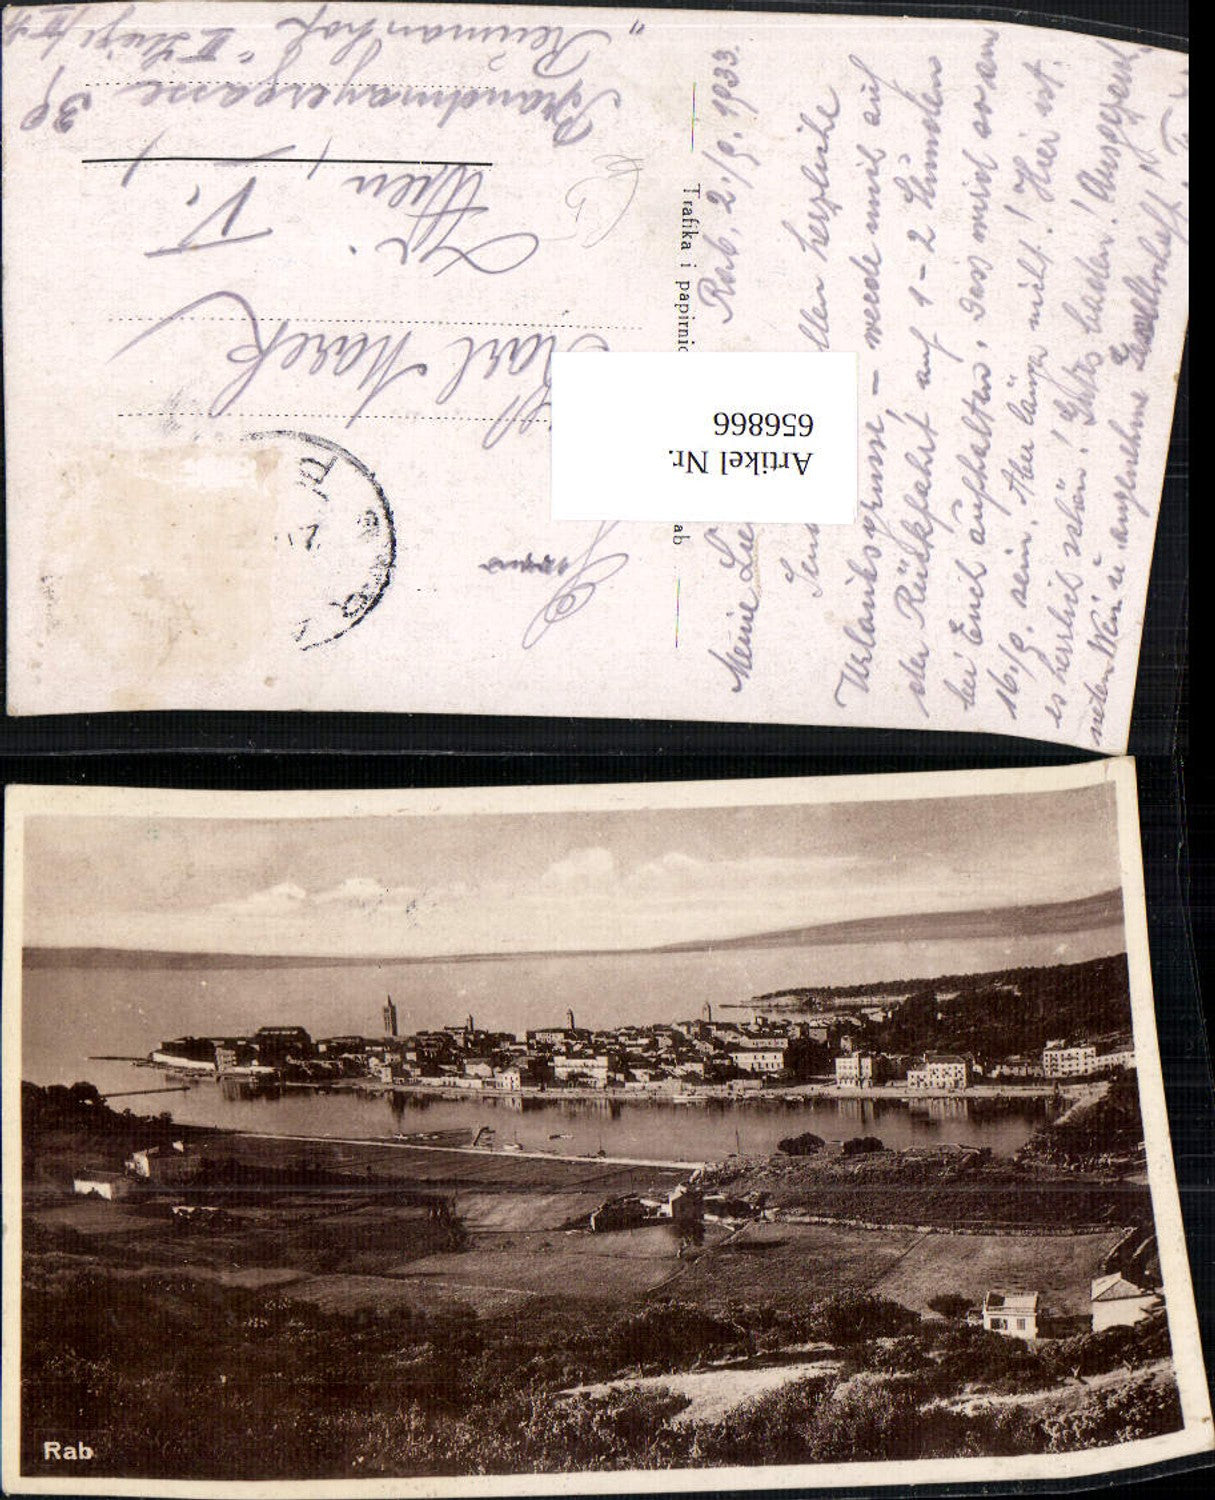 Rab, 2./9. 1933.
Meine Lie
allen herzliche
Urlaubsgrüsse – werde mich auf
der Rückfahrt auf 1-2 Stunden
bei Euch aufhalten, dass wird so am
16./9. sein. Aber länger nicht! Hier ist
es herrlich schön! Gutes baden! Ausgezeich-
neten Wein u. angenehme Gesellschaft!
Trafika i papirnic
ab
Artikel Nr.
656866
Karl Marek
Wien
V.,
Brandmayergasse 39
"Reumannhof"
Rab